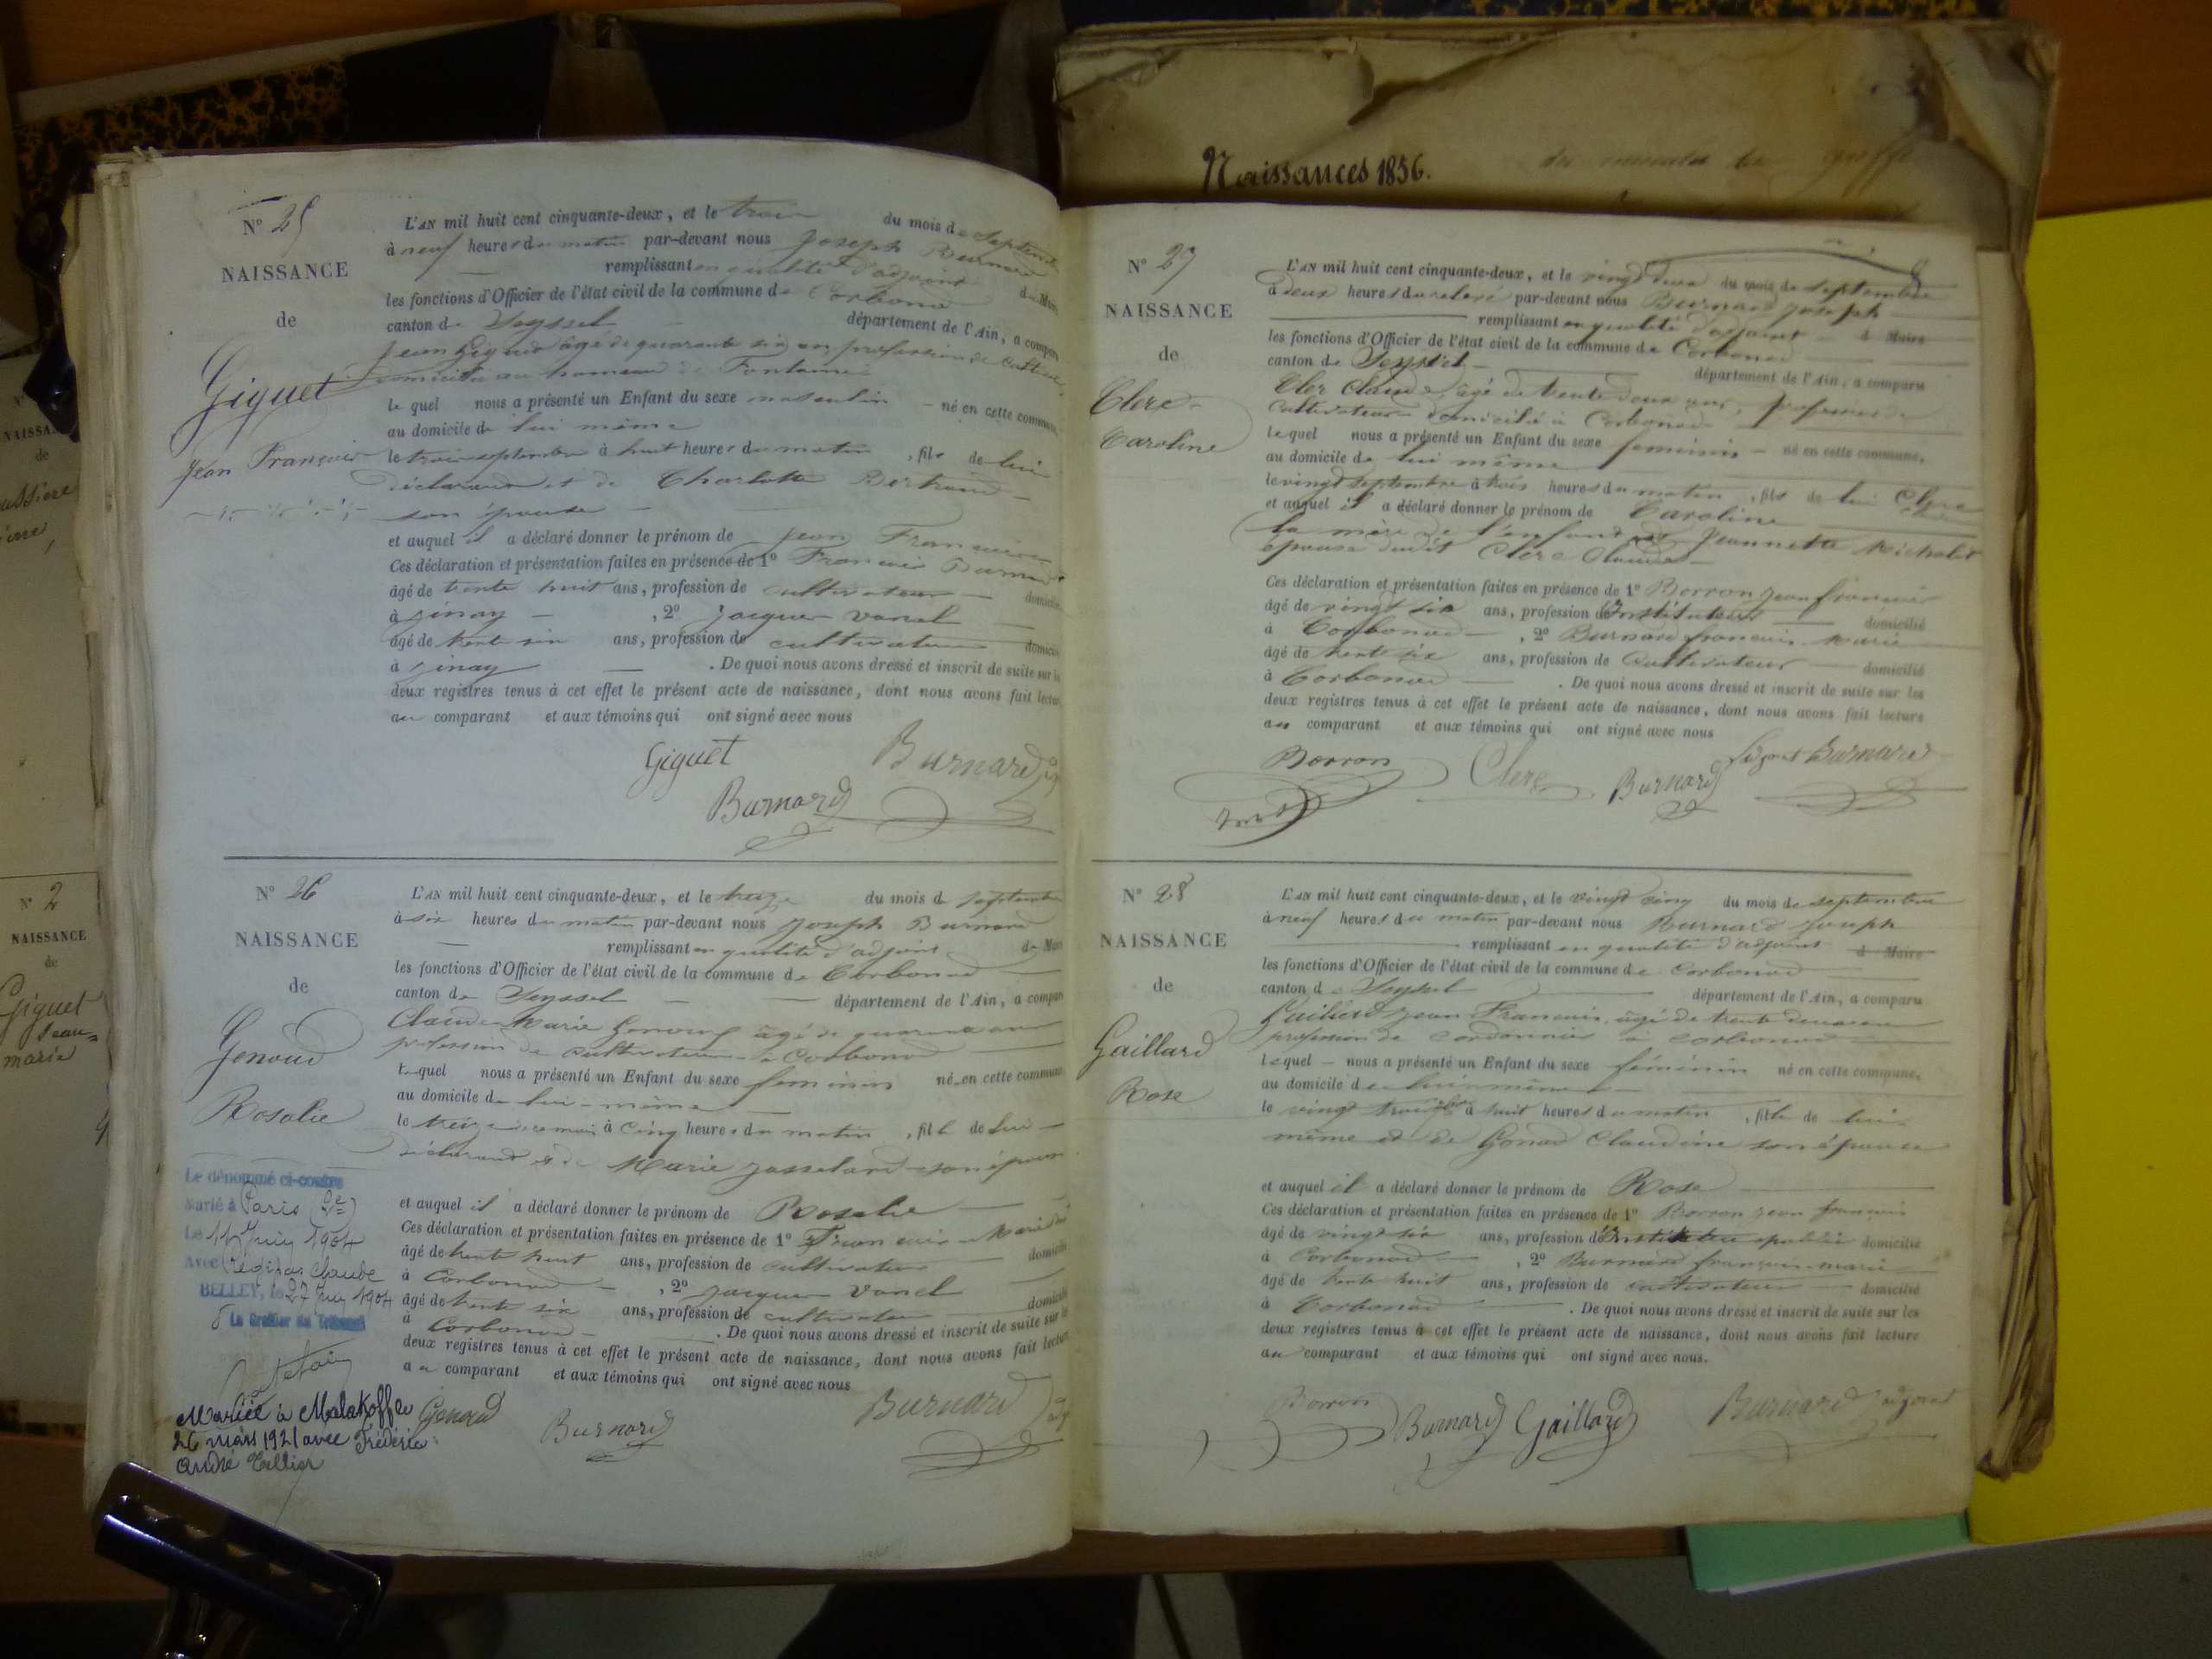 Naissances 1856.
N° 25
NAISSANCE
de
Giguet
Jean François
L'AN mil huit cent cinquante-deux, et le trois du mois de Septembre
à neuf heures du matin par-devant nous Joseph Burnard
remplissant en qualité d'adjoint de Maire
les fonctions d'Officier de l'état civil de la commune de Corbonod
canton de Seyssel département de l'Ain, a comparu
Jean Giguet âgé de quarante six ans profession de cultivateur
domicilié au hameau de Fontaine
lequel nous a présenté un Enfant du sexe masculin né en cette commune,
au domicile de lui même
le trois septembre à huit heures du matin, fils de lui
déclarant et de Charlotte Bertrand
son épouse
et auquel il a déclaré donner le prénom de Jean François
Ces déclaration et présentation faites en présence de 1° François Burnard
âgé de trente huit ans, profession de cultivateur domicilié
à Sinay, 2° Jacques Vanel
âgé de trente six ans, profession de cultivateur domicilié
à Sinay. De quoi nous avons dressé et inscrit de suite sur les
deux registres tenus à cet effet le présent acte de naissance, dont nous avons fait lecture
au comparant et aux témoins qui ont signé avec nous
Giguet Burnard adj
Burnard
N° 26
NAISSANCE
de
Genoud
Rosalie
L'AN mil huit cent cinquante-deux, et le treize du mois de septembre
à six heures du matin par-devant nous Joseph Burnard
remplissant en qualité d'adjoint de Maire
les fonctions d'Officier de l'état civil de la commune de Corbonod
canton de Seyssel département de l'Ain, a comparu
Claude Marie Genoud âgé de quarante ans
profession de cultivateur à Corbonod
lequel nous a présenté un Enfant du sexe féminin né en cette commune
au domicile de lui-même
le treize de ce mois à cinq heures du matin, fille de lui
déclarant et de Marie son épouse
et auquel il a déclaré donner le prénom de Rosalie
Ces déclaration et présentation faites en présence de 1° François Marie
âgé de trente huit ans, profession de cultivateur domicilié
à Corbonod, 2° Jacques Vanel
âgé de trente six ans, profession de cultivateur domicilié
à Corbonod. De quoi nous avons dressé et inscrit de suite sur les
deux registres tenus à cet effet le présent acte de naissance, dont nous avons fait lecture
au comparant et aux témoins qui ont signé avec nous
Genoud Burnard Burnard adj
Le dénommé ci-contre
Marié à Paris
Le Juin 1904
Avec Claude
BELLEY, le 27 Juin 1904
Le Greffier du Tribunal
Mariée à Malakoff le
26 mars 1921 avec Frédéric
André Tellier
N° 27
NAISSANCE
de
Clerc
Caroline
L'AN mil huit cent cinquante-deux, et le vingt deux du mois de septembre
à deux heures du relevé par-devant nous Burnard Joseph
remplissant en qualité d'adjoint de Maire
les fonctions d'Officier de l'état civil de la commune de Corbonod
canton de Seyssel département de l'Ain, a comparu
Clerc Claude, âgé de trente deux ans, profession de
cultivateur domicilié à Corbonod
lequel nous a présenté un Enfant du sexe féminin né en cette commune,
au domicile de lui même
le vingt septembre à trois heures du matin, fils de lui Clerc
et auquel il a déclaré donner le prénom de Caroline
la mère de l'enfant est Jeannette Michalet
épouse dudit Clerc Claude
Ces déclaration et présentation faites en présence de 1° Borron Jean françois
âgé de vingt six ans, profession d'Instituteur domicilié
à Corbonod, 2° Burnard françois Marie
âgé de trente six ans, profession de cultivateur domicilié
à Corbonod. De quoi nous avons dressé et inscrit de suite sur les
deux registres tenus à cet effet le présent acte de naissance, dont nous avons fait lecture
au comparant et aux témoins qui ont signé avec nous
Borron Clerc Burnard Burnard
N° 28
NAISSANCE
de
Gaillard
Rose
L'AN mil huit cent cinquante-deux, et le vingt cinq du mois de septembre
à neuf heures du matin par-devant nous Burnard Joseph
remplissant en qualité d'adjoint de Maire
les fonctions d'Officier de l'état civil de la commune de Corbonod
canton de Seyssel département de l'Ain, a comparu
Gaillard Jean François âgé de trente deux ans
profession de cordonnier à Corbonod
lequel nous a présenté un Enfant du sexe féminin né en cette commune,
au domicile de lui même
le vingt trois à huit heures du matin, fille de lui
même et de Genoud Claudine son épouse
et auquel il a déclaré donner le prénom de Rose
Ces déclaration et présentation faites en présence de 1° Borron Jean françois
âgé de vingt six ans, profession d'Instituteur public domicilié
à Corbonod, 2° Burnard françois marie
âgé de trente huit ans, profession de cultivateur domicilié
à Corbonod. De quoi nous avons dressé et inscrit de suite sur les
deux registres tenus à cet effet le présent acte de naissance, dont nous avons fait lecture
au comparant et aux témoins qui ont signé avec nous.
Borron Burnard Gaillard Burnard adjoint
N° 2
NAISSANCE
de
Giguet
Jean-
marie